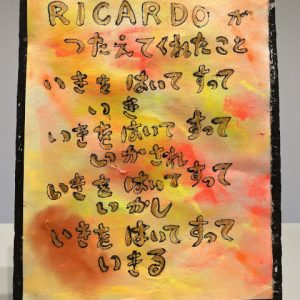 RICARDOが
つたえてくれたこと
いきを はいて すって
いき
いきを はいて すって
いかされ
いきを はいて すって
いかし
いきを はいて すって
いきる